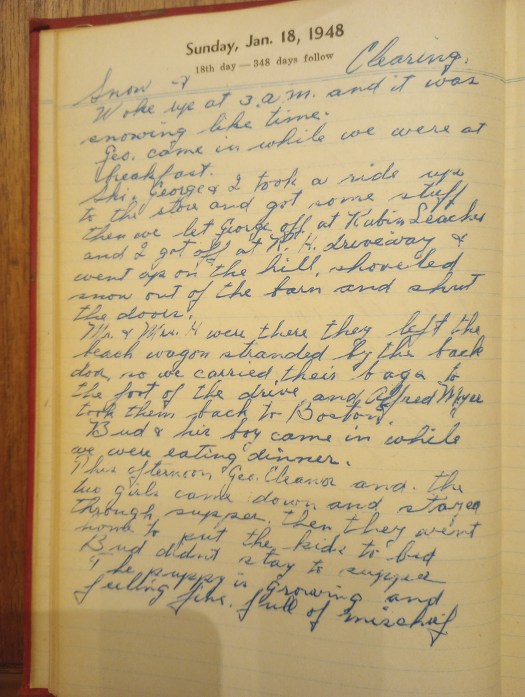 Sunday, Jan. 18, 1948
18th day — 348 days follow
Snow & Clearing.
Woke up at 3 a.m. and it was
snowing like time.
Geo. came in while we were at
breakfast.
Ski, George & I took a ride up
to the store and got some stuff
then we let George off at Rubin
and I got off at K. H. driveway &
went up on the hill, shoveled
snow out of the barn and shut
the doors.
Mr. & Mrs. H were there they left the
beach wagon stranded by the back
door, so we carried their bags to
the foot of the drive, and Alfred
took them back to Boston.
Bud & his boy came in while
we were eating dinner.
This afternoon Geo. Eleanor and the
two girls came down and stayed
through supper. then they went
home to put the kids to bed
Bud didnt stay to supper
The puppy is growing and
feeling fine. full of mischif